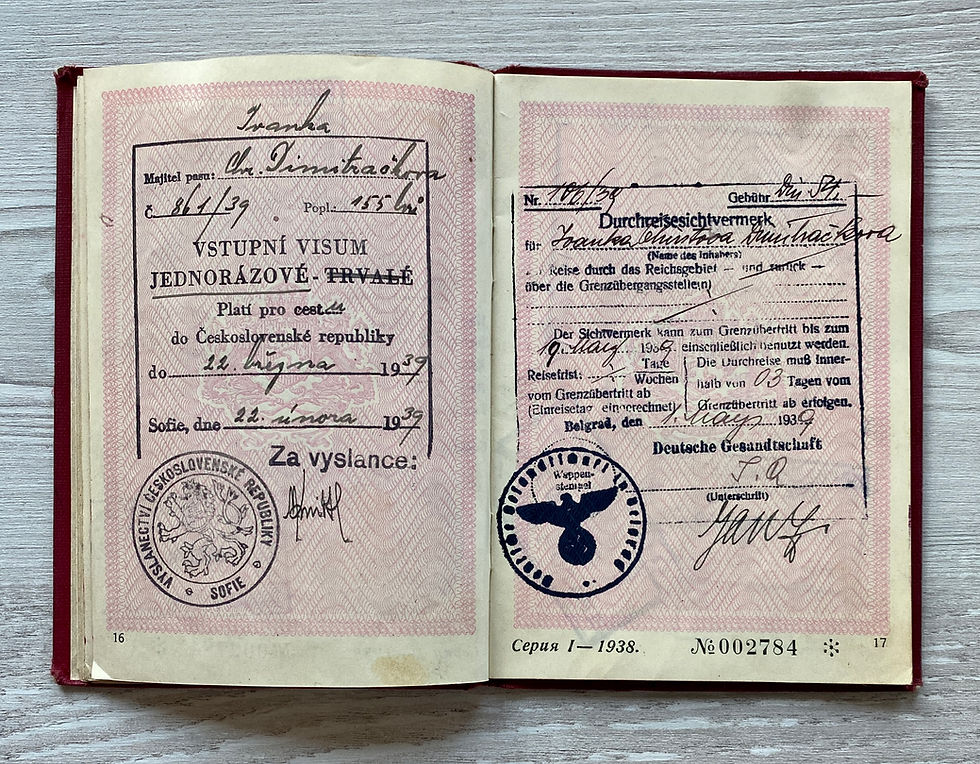 Ivanka
Majitel pasu: Chr. Dimitračkova
č. 861/39 Popl.: 155 lvů
VSTUPNÍ VISUM
JEDNORÁZOVÉ - TRVALÉ
Platí pro cestu
do Československé republiky
do 22. března 1939
Sofie, dne 22. února 1939
Za vyslance:
VYSLANECTVÍ ČESKOSLOVENSKÉ REPUBLIKY
SOFIE
16
Nr. 106/39 Gebühr Din 54.—
Durchreisesichtvermerk
für Ivanka Christova Dimitračkova
(Name des Inhabers)
Reise durch das Reichsgebiet — und zurück —
über die Grenzübergangsstelle(n)
Der Sichtvermerk kann zum Grenzübertritt bis zum
19. März 1939 einschließlich benutzt werden.
Reisefrist: Tage Wochen
vom Grenzübertritt ab
(Einreisetag eingerechnet)
Die Durchreise muß inner-
halb von 03 Tagen vom
Grenzübertritt ab erfolgen.
Belgrad, den 1. März 1939
Deutsche Gesandtschaft
(Unterschrift)
Wappen-
stempel
Deutsche Gesandtschaft in Belgrad
Серия I—1938. №002784
17